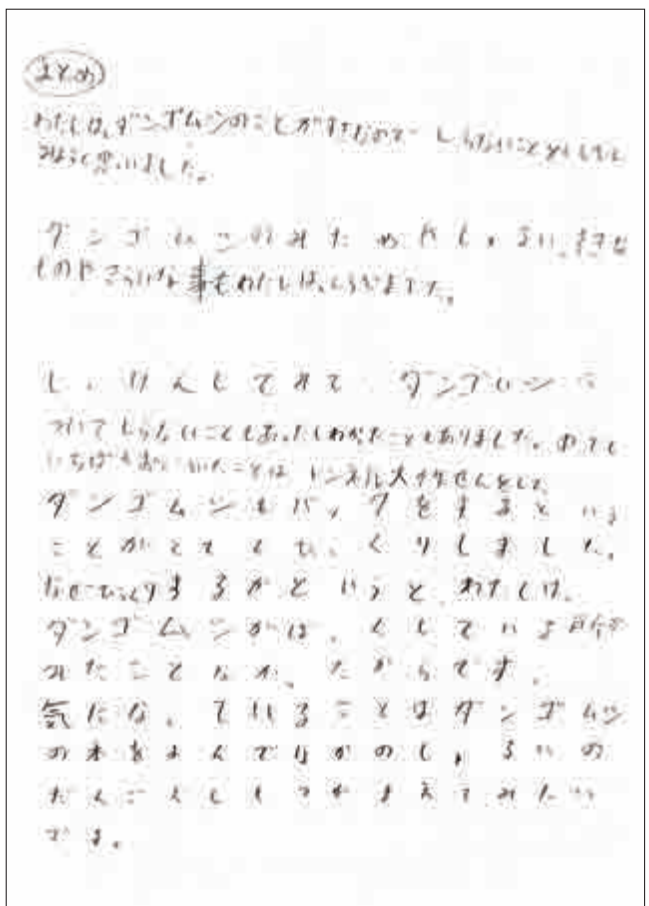 まとめ
わたしは、ダンゴムシのことがすきなので しらないことを
みようと思いました。
ダンゴムシのみためやしょるい、すきな
ものやきらいな事もわたしは、しらべました。
じっけんしてみて ダンゴムシに
ついてしらないこともあったしわかたこともありました。中でも
いちばん かたことは トンネル大作せんをして
ダンゴムシもバックをするという
ことがとてもびっくりしました。
なぜびっくりするかというと、わたしは、
ダンゴムシがばっくしている
みたことなかったからです。
気になっていることはダンゴムシ
の本をよんでほかのしゅるいの
だんごむしもつかまえてみたい
です。